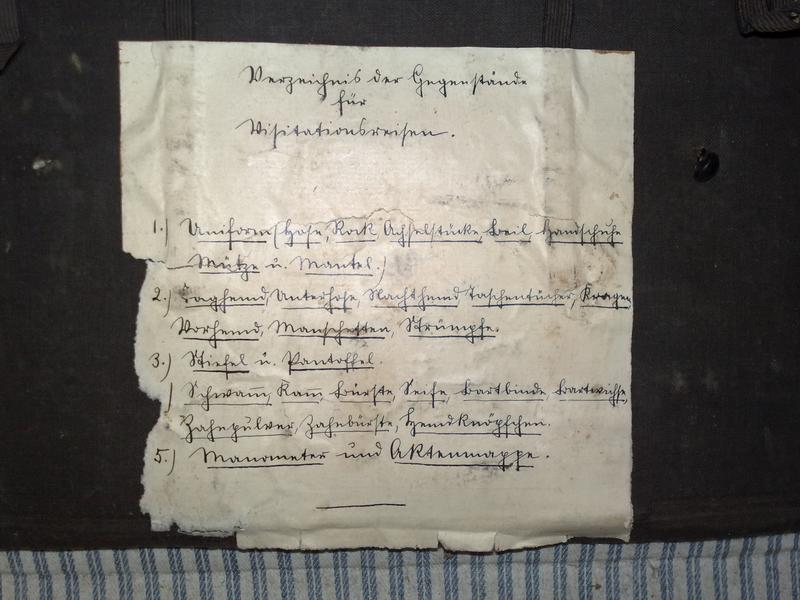 Verzeichnis der Gegenstände
für
Visitationsreisen.
1.) Uniform (Hose, Rock Achselstücke, Beil, Handschuhe
Mütze u. Mantel.)
2.) Taghemd, Unterhose, Nachthemd Taschentücher, Kragen
Vorhemd, Manschetten, Strümpfe.
3.) Stiefel u. Pantoffel.
) Schwam̅, Kam̅, Bürste, Seife, Bartbinde, Bartwichse,
Zahnpulver, Zahnbürste, Hemdknöpfchen.
5.) Manometer und Aktenmappe.